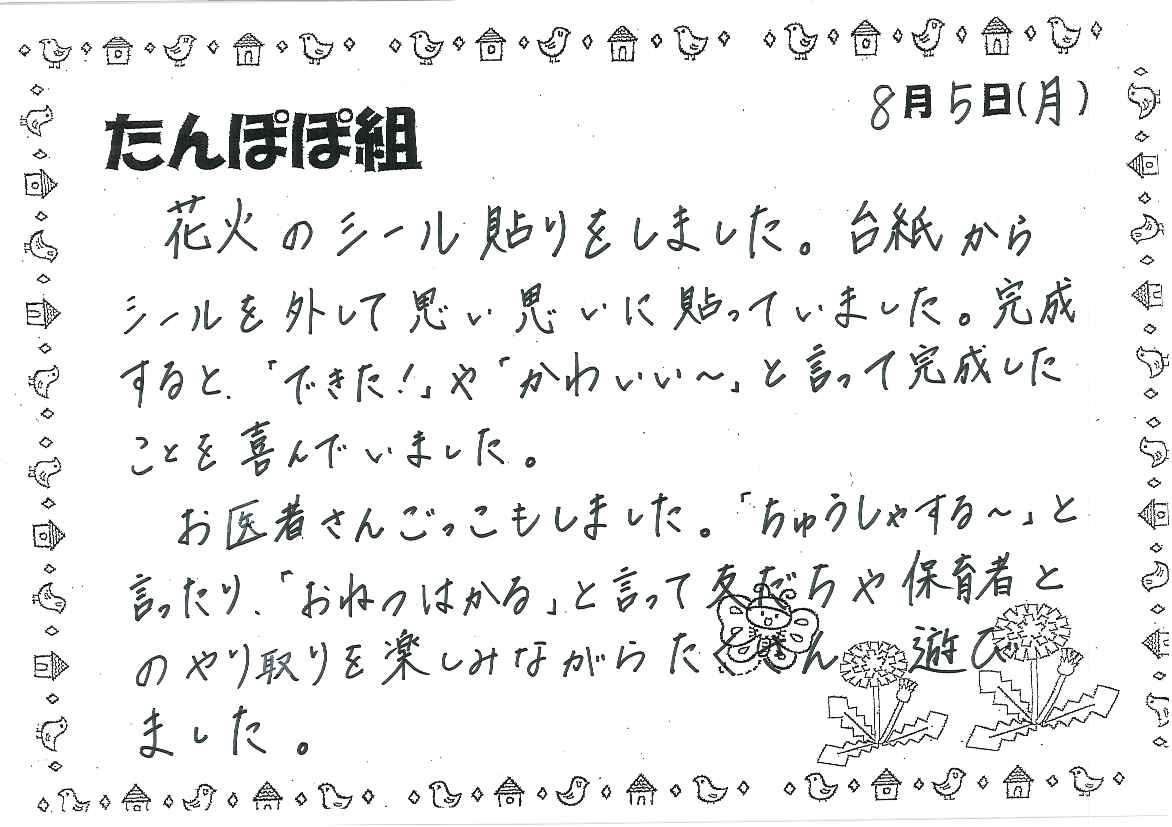 8月5日(月)
たんぽぽ組
花火のシール貼りをしました。台紙から
シールを外して思い思いに貼っていました。完成
すると、「できた!」や「かわいい～」と言って完成した
ことを喜んでいました。
お医者さんごっこもしました。「ちゅうしゃする～」と
言ったり、「おねつはかる」と言って友だちや保育者と
のやり取りを楽しみながらたくさん遊び
ました。